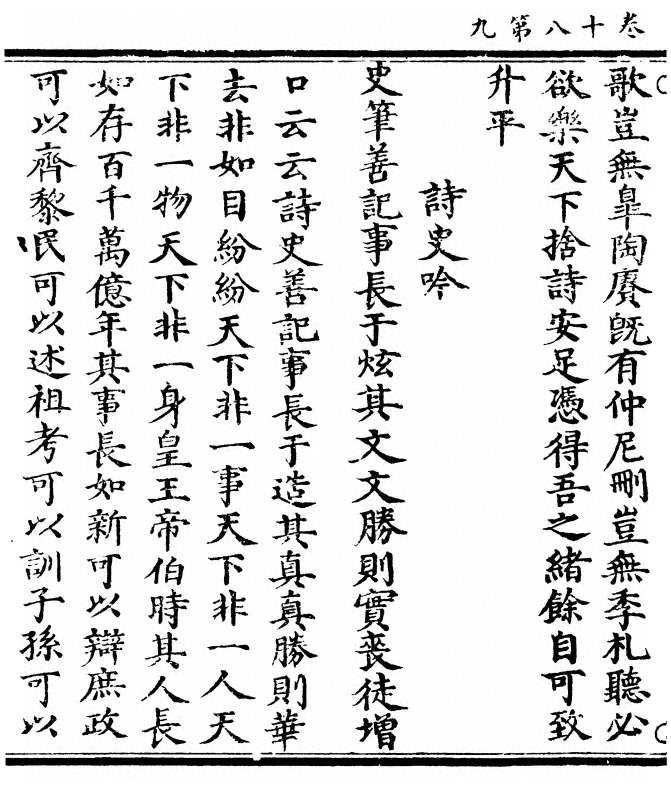 卷十八第九
歌豈無臯陶賡旣有仲尼刪豈無季札聽必
欲樂天下捨詩安足憑得吾之緒餘自可致
升平
詩史吟
史筆善記事長于炫其文文勝則實喪徒增
口云云詩史善記事長于造其真真勝則華
去非如目紛紛天下非一事天下非一人天
下非一物天下非一身皇王帝伯時其人長
如存百千萬億年其事長如新可以辯庶政
可以齊黎民可以述祖考可以訓子孫可以